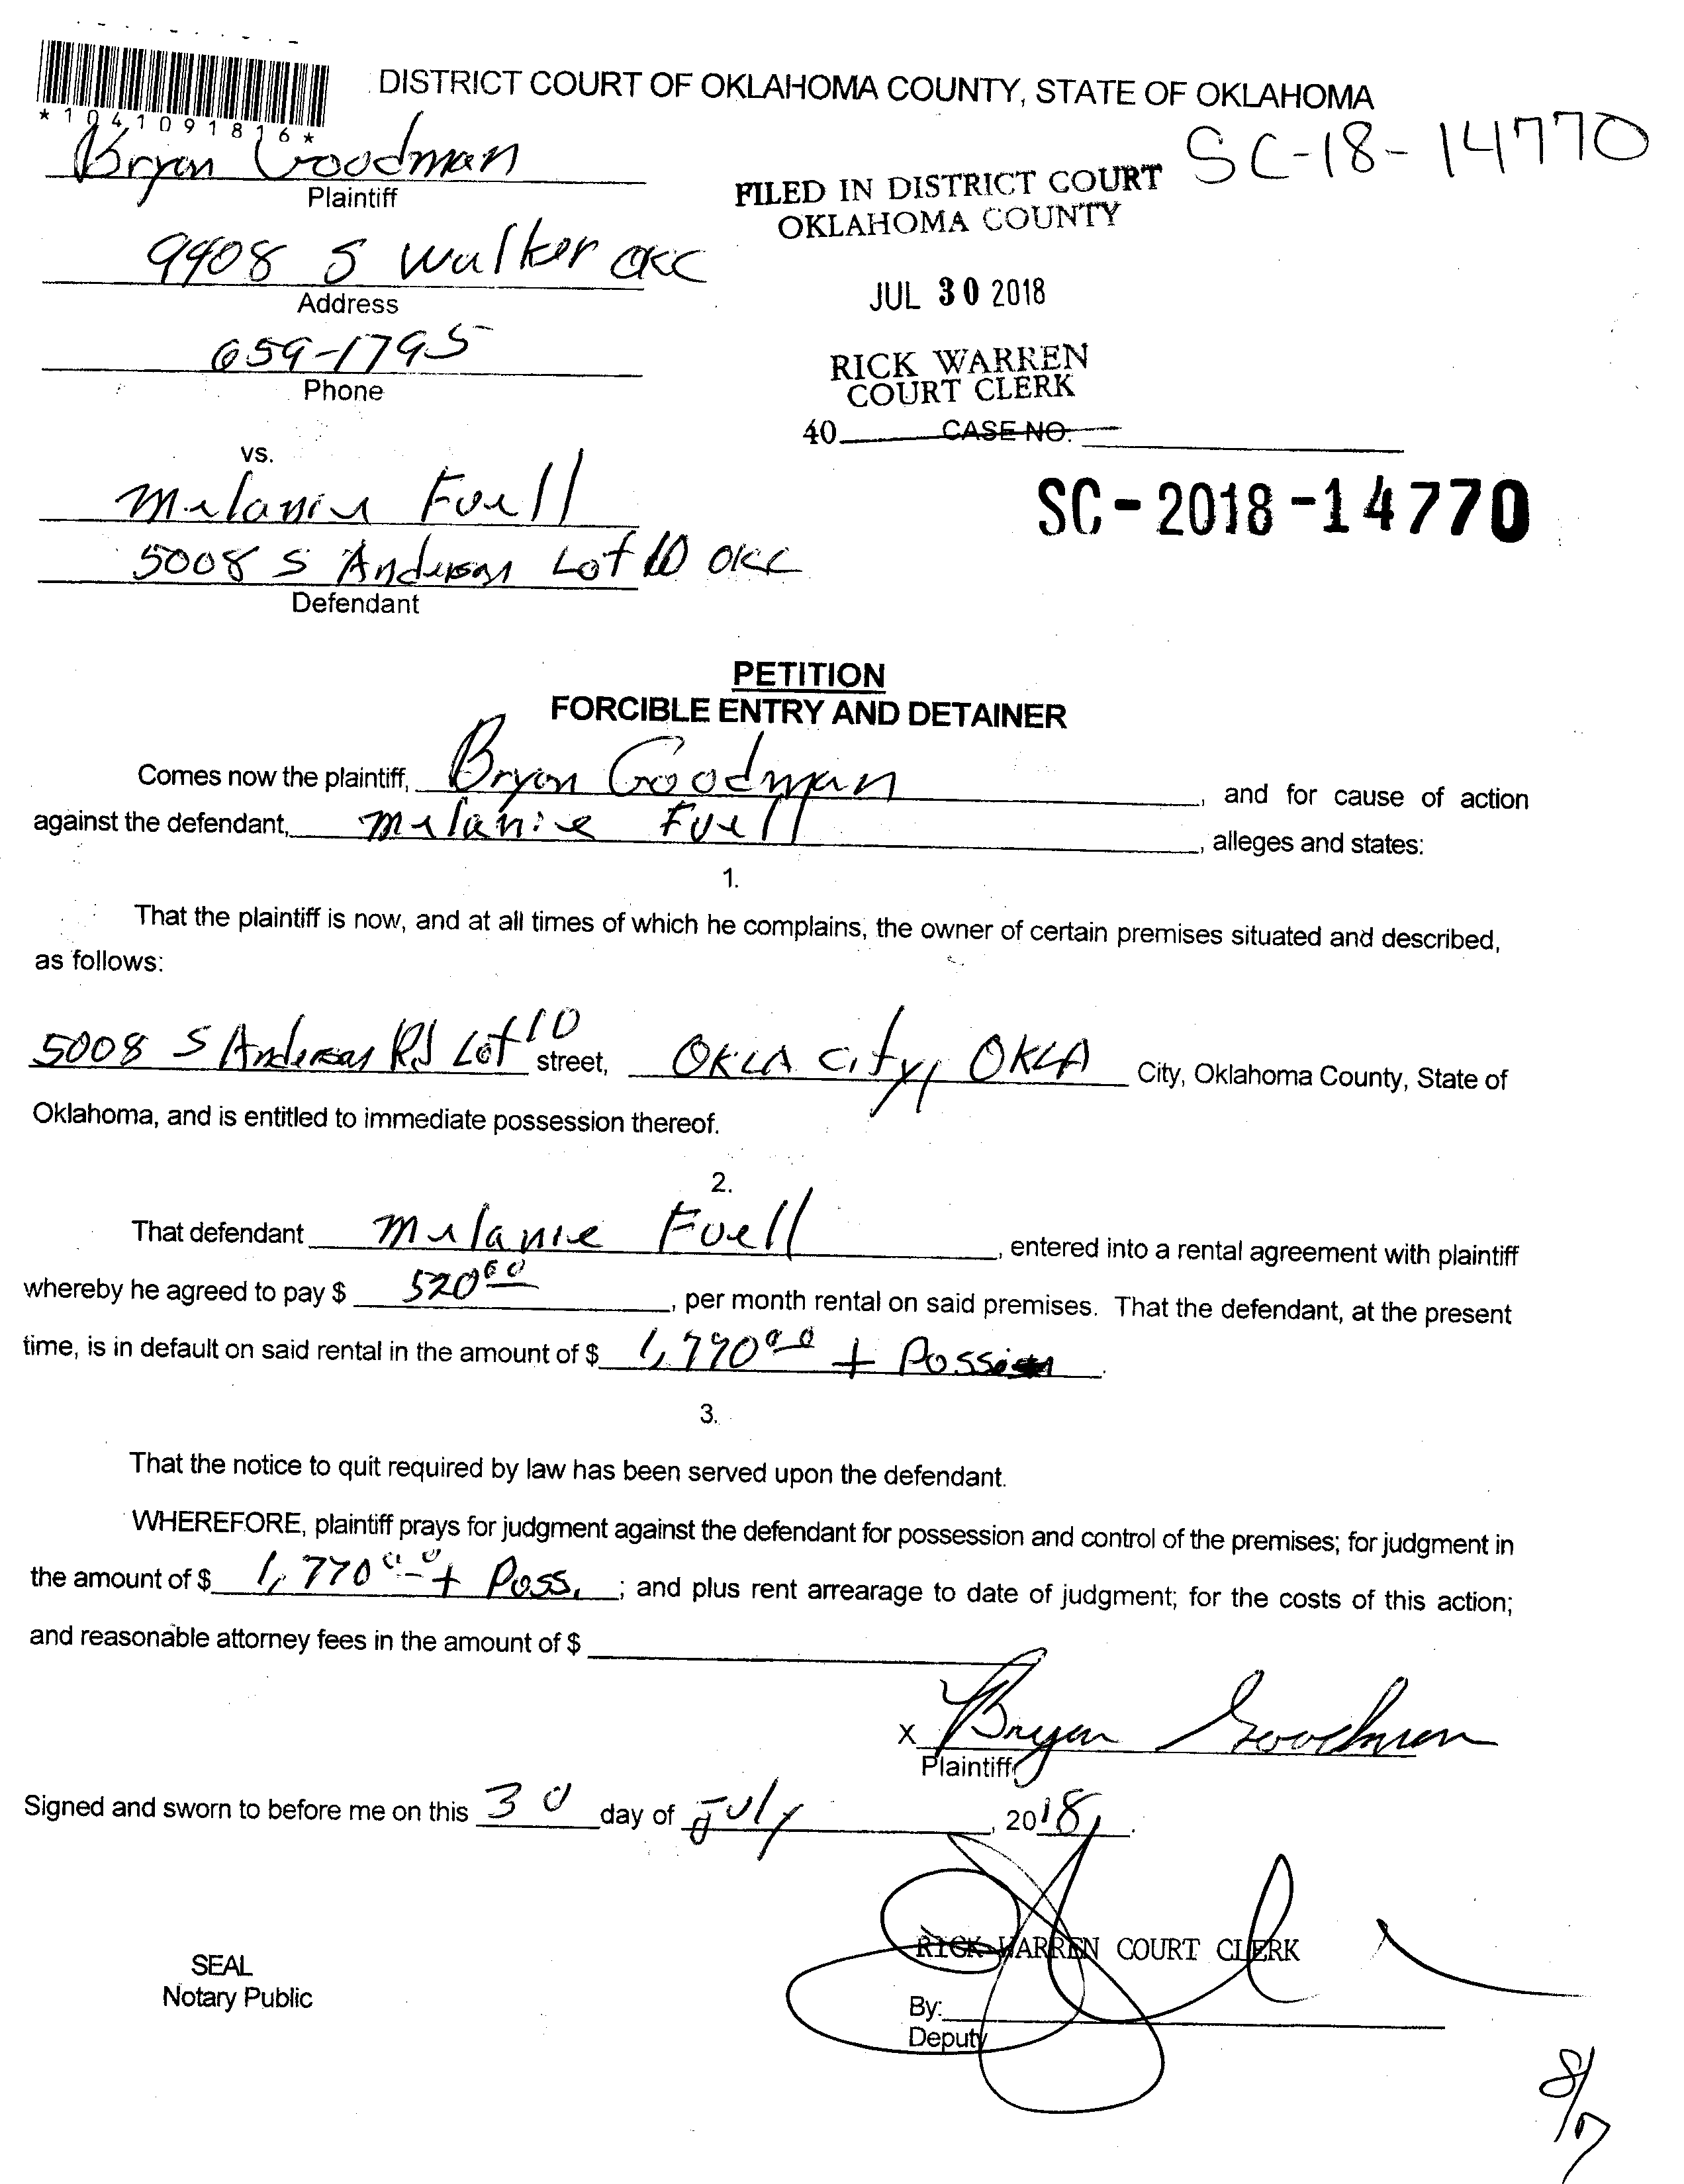 DISTRICT COURT OF OKLAHOMA COUNTY, STATE OF OKLAHOMA
*1041091816*
SC-18-14770
Bryan Goodman
Plaintiff
FILED IN DISTRICT COURT
OKLAHOMA COUNTY
9908 S Walker OKC
Address
JUL 30 2018
659-1795
Phone
RICK WARREN
COURT CLERK
40 CASE NO.
vs.
Melanie Fuell
SC-2018-14770
5008 S Anderson Lot 10 OKC
Defendant
PETITION
FORCIBLE ENTRY AND DETAINER
Comes now the plaintiff, Bryan Goodman, and for cause of action
against the defendant, Melanie Fuell, alleges and states:
1.
That the plaintiff is now, and at all times of which he complains, the owner of certain premises situated and described,
as follows:
5008 S Anderson Rd Lot 10 street, OKLA City, OKLA City, Oklahoma County, State of
Oklahoma, and is entitled to immediate possession thereof.
2.
That defendant Melanie Fuell, entered into a rental agreement with plaintiff
whereby he agreed to pay $ 520.00, per month rental on said premises. That the defendant, at the present
time, is in default on said rental in the amount of $ 1,770.00 +
3.
That the notice to quit required by law has been served upon the defendant.
WHEREFORE, plaintiff prays for judgment against the defendant for possession and control of the premises; for judgment in
the amount of $ 1,770.00 + Poss. ; and plus rent arrearage to date of judgment; for the costs of this action;
and reasonable attorney fees in the amount of $
X Bryan Goodman
Plaintiff
Signed and sworn to before me on this 30 day of July, 2018.
RICK WARREN COURT CLERK
SEAL
Notary Public
By:
Deputy
8/7